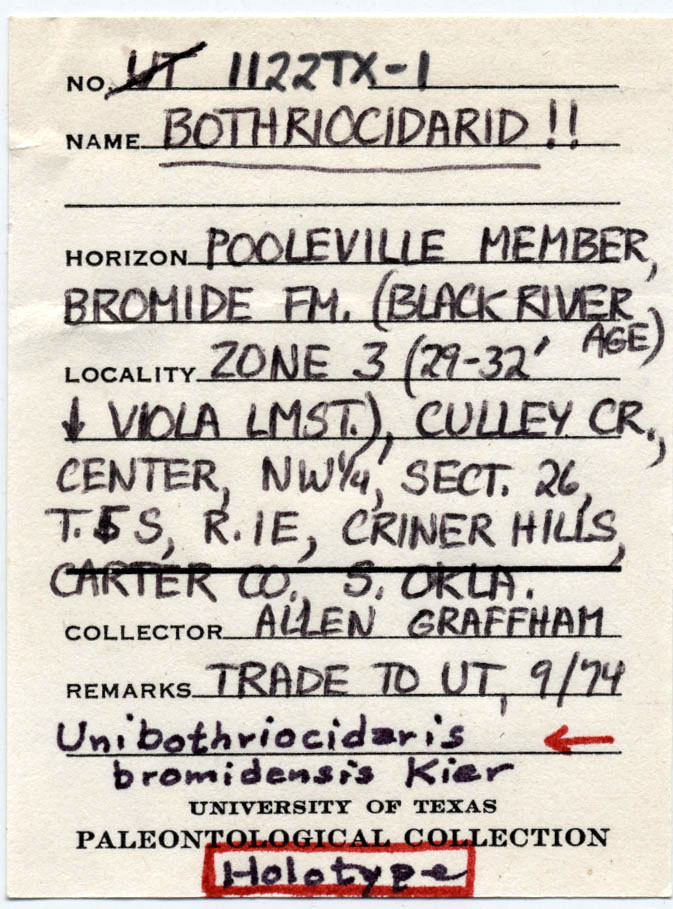 NO. UT 1122TX-1
NAME BOTHRIOCIDARID !!
HORIZON POOLEVILLE MEMBER,
BROMIDE FM. (BLACK RIVER
AGE)
LOCALITY ZONE 3 (29-32'
↓ VIOLA LMST.), CULLEY CR.,
CENTER, NW 1/4, SECT. 26,
T. 5 S, R. 1E, CRINER HILLS,
CARTER CO., S. OKLA.
COLLECTOR ALLEN GRAFFHAM
REMARKS TRADE TO UT, 9/74
Unibothriocidaris ←
bromidensis Kier
UNIVERSITY OF TEXAS
PALEONTOLOGICAL COLLECTION
Holotype